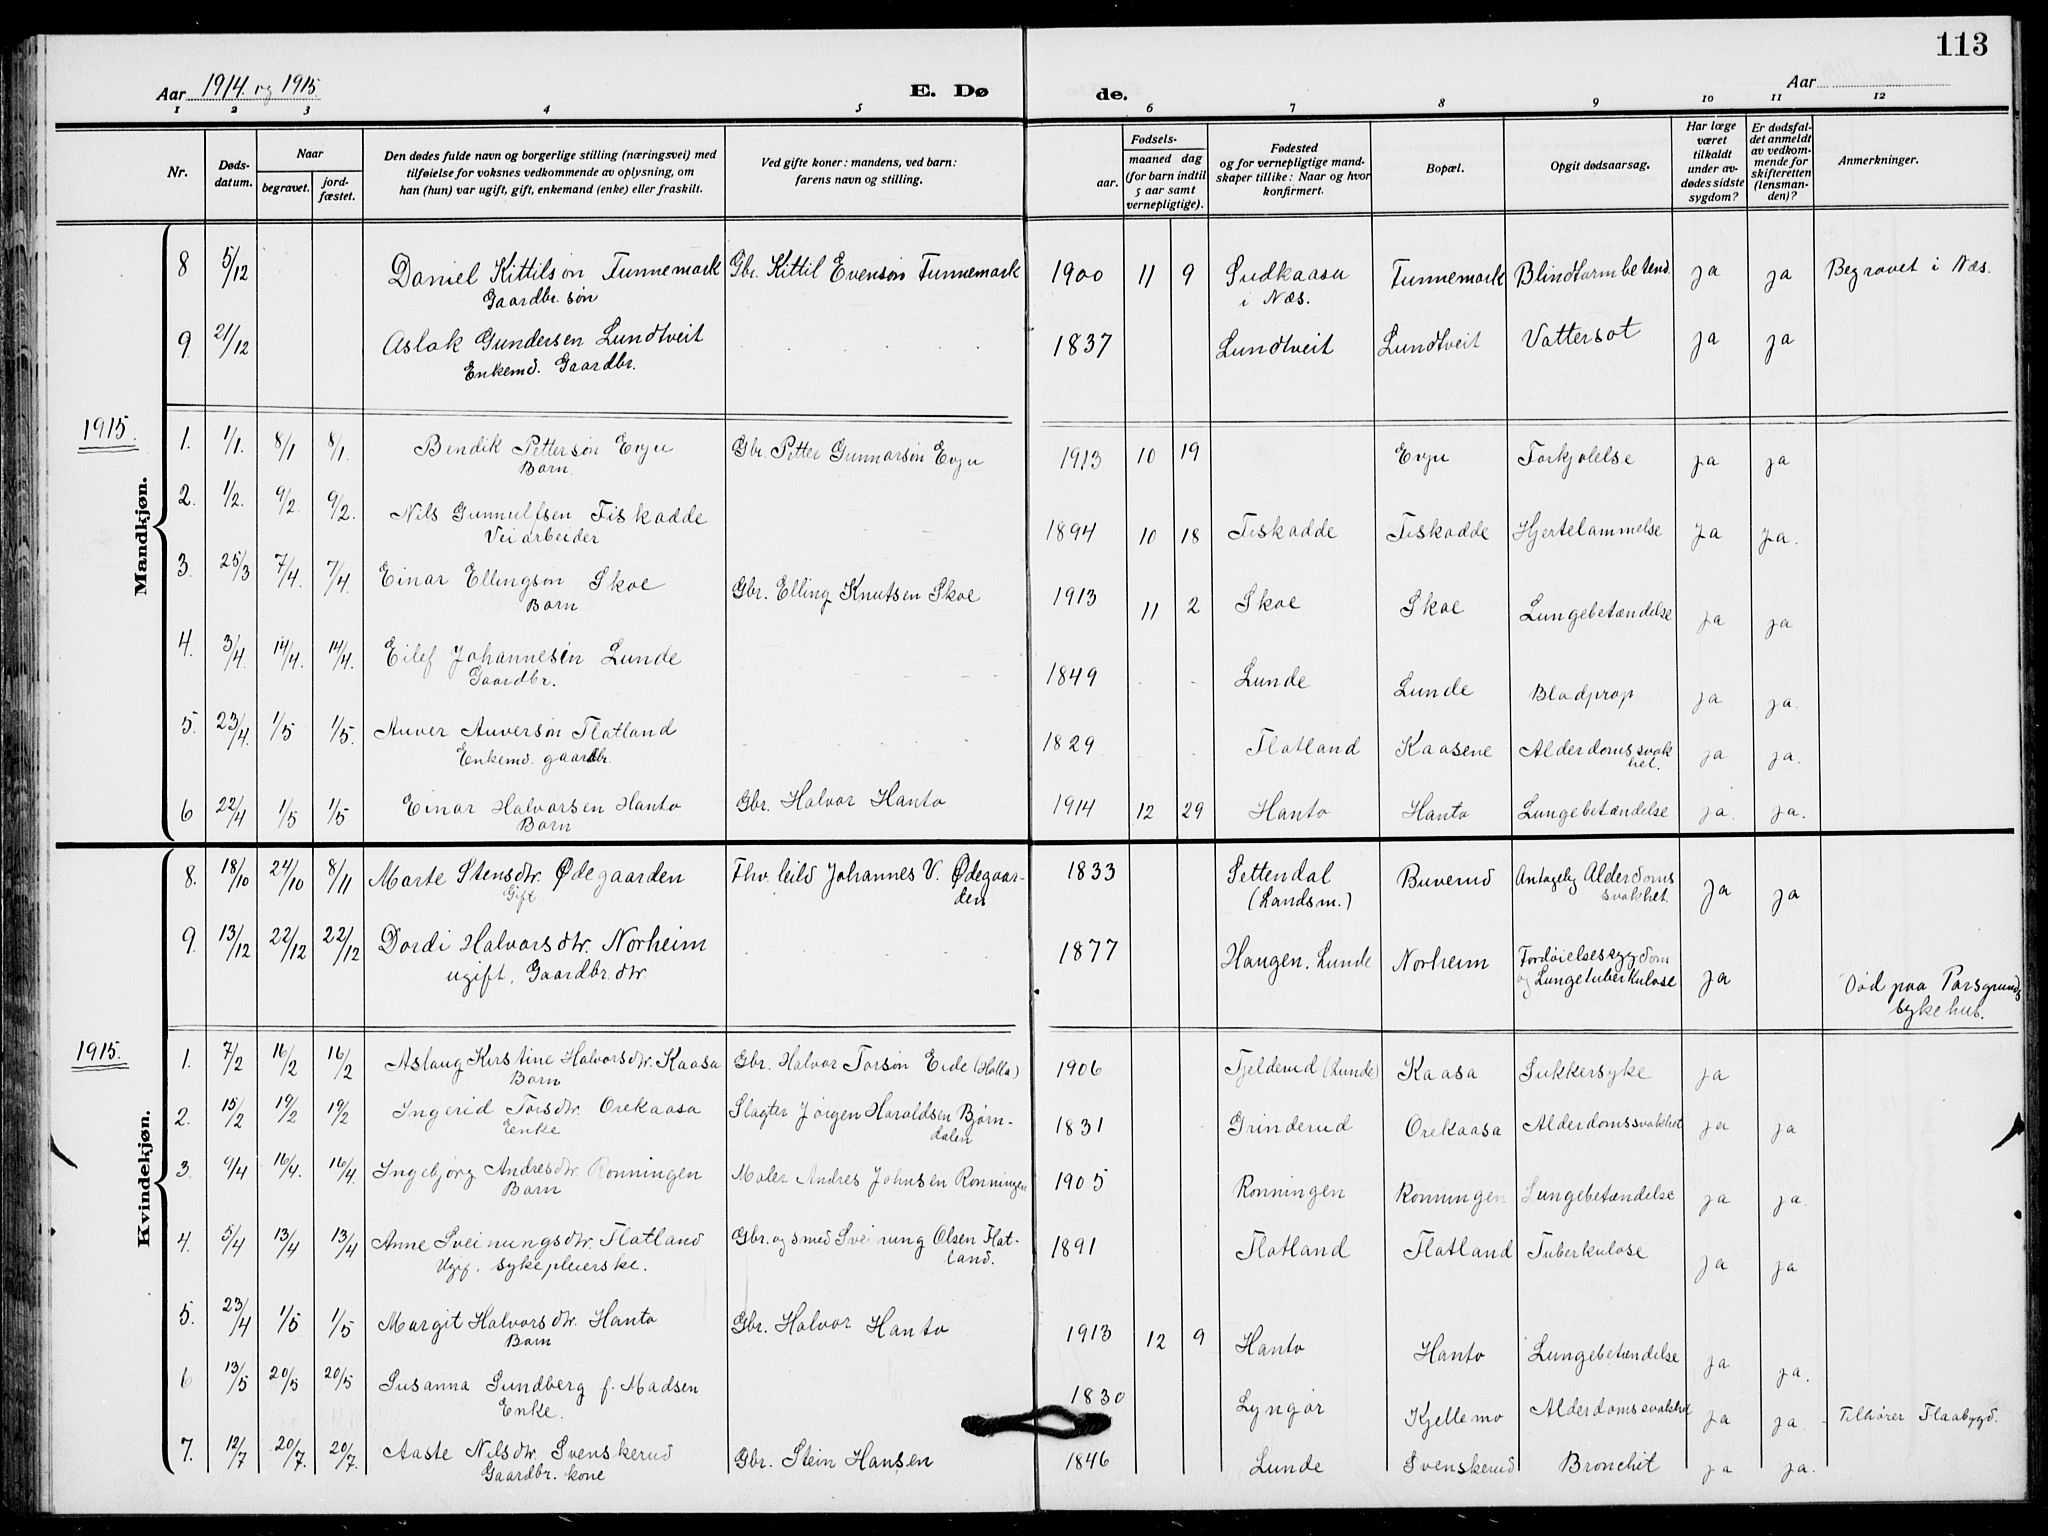 113
Aar 1914 og 1915
E. Dø
de.
Aar
1 2 3 4 5 6 7 8 9 10 11 12
Nr.
Døds-
datum.
Naar
begravet.
jord-
fæstet.
Den dødes fulde navn og borgerlige stilling (næringsvei) med
tilføielse for voksnes vedkommende av oplysning, om
han (hun) var ugift, gift, enkemand (enke) eller fraskilt.
Ved gifte koner: mandens, ved barn:
farens navn og stilling.
Fødsels-
aar.
maaned dag
(for barn indtil
5 aar samt
vernepligtige).
Fødested
og for vernepligtige mand-
skaper tillike: Naar og hvor
konfirmert.
Bopæl.
Opgit dødsaarsag.
Har læge
været
tilkaldt
under av-
dødes sidste
sygdom?
Er dødsfal-
det anmeldt
av vedkom-
mende for
skifteretten
(lensman-
den)?
Anmerkninger.
Mandkjøn.
8 5/12 Daniel Kittilson Tunnemark Gbr. Kittil Evenson Tunnemark 1900 11 9 Sudkaasa Tunnemark Blindtarmbetend. ja ja Begravet i Næs.
Gaardbr. søn i Næs.
9 21/12 Aslak Gundersen Lundtveit 1837 Lundtveit Lundtveit Vattersot ja ja
Enkemd. Gaardbr.
1915.
1. 1/1. 8/1 8/1. Bendik Petterson Evju Gbr. Petter Gunnarson Evju 1913 10 19 Evju Forkjolelse ja ja
Barn.
2. 1/2. 9/2. 9/2. Nils Gunnulfsen Fiskodde 1894 10 18 Fiskodde Fiskodde Hjertelammelse ja ja.
Veiarbeider
3. 25/3 7/4. 7/4. Einar Ellingson Skoe Gbr. Elling Knutsen Skoe 1913 11 2 Skoe Skoe Lungebetændelse ja ja
Barn
4. 3/4. 14/4. 14/4. Eilef Johannesen Lunde 1849 Lunde Lunde Blodprop ja ja.
Gaardbr.
5. 23/4. 1/5 1/5. Auver Auverson Flatland 1829 Flatland Kaasene Alderdomssvak ja ja.
Enkemd. gaardbr. het.
6 22/4 1/5 1/5 Einar Halvorsen Hanto Gbr. Halvor Hanto 1914 12 29 Hanto Hanto Lungebetændelse ja. ja.
Barn
Kvindekjøn.
8. 18/10 24/10 8/11 Marte Stensdtr. Ødegaarden Fhv leild Johannes V. Ødegaar- 1833 Settendal Buverud Antagelig Alderdoms ja ja
Gift den (Landsm.) svakhet.
9. 13/12 22/12 22/12 Dordi Halvorsdtr. Norheim 1877 Haugen. Lunde Norheim Fordøielsessygdom ja
ugift, Gaardbr. dtr. og Lungetuberkulose Död paa Porsgrunds
sykehus.
1915.
1. 7/2 16/2 16/2 Aslaug Kirstine Halvorsdtr. Kaasa Gbr. Halvor Torson Eide (Holla) 1906 Fjelderud (Lunde) Kaasa Sukkersyke ja
Barn
2. 15/2 19/2 19/2 Ingerid Torsdtr. Orekaasa Slagter Jørgen Haraldsen Bjørn- 1831 Grinderud Orekaasa Alderdomssvakhet ja ja
Eenke dalen
3. 9/4 16/4. 16/4. Ingebjorg Andresdtr Ronningen Maler Andres Johnsen Ronningen 1905 Ronningen Ronningen Lungebetændelse ja ja.
Barn
4. 5/4 13/4 13/4 Anne Sveinungsdtr. Flatland Gbr. og smed Sveinung Olsen Flat- 1891 Flatland Flatland Tuberkulose ja ja
Ugif. sykepleierske. land.
5. 23/4 1/5 1/5 Margit Halvorsdtr. Hanto Gbr. Halvor Hanto 1913 12 9 Hanto Hanto Lungebetændelse ja ja.
Barn
6 13/5 20/5 20/5 Susanna Sundberg f. Madsen 1830 Lyngör Kjellemo Alderdomssvakhet ja ja Tilhører Flaabygd.
Enke.
7. 12/7 20/7. 20/7. Aaste Nilsdtr. Svenskerud Gbr. Stein Hansen 1846 Lunde Svenskerud Bronchit ja ja.
Gaardbr. kone